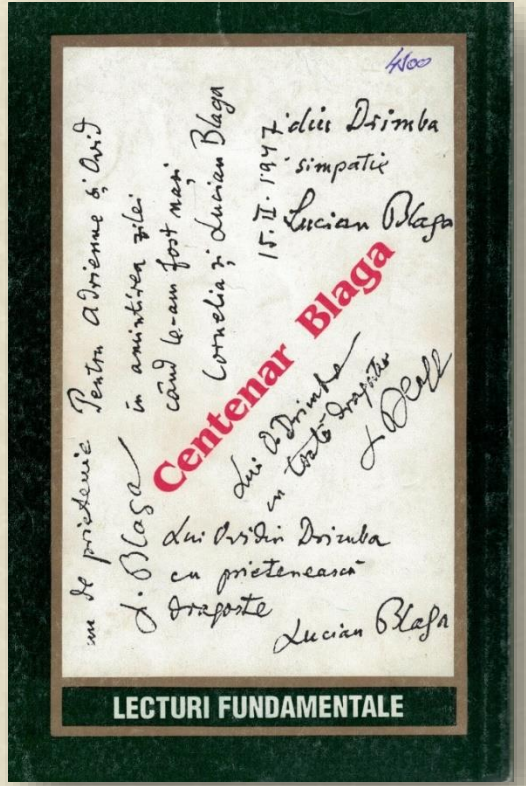 4500
Pentru Adrienne și Ovid
în amintirea zilei
când le-am fost nași
Cornelia și Lucian Blaga
15.II.1947
Drimba
simpatie
Lucian Blaga
Centenar Blaga
Lui O. Drimba
cu toată dragostea
L. Blaga
de prietenie
L. Blaga
Lui Ovidiu Drimba
cu prietenească
dragoste
Lucian Blaga
LECTURI FUNDAMENTALE